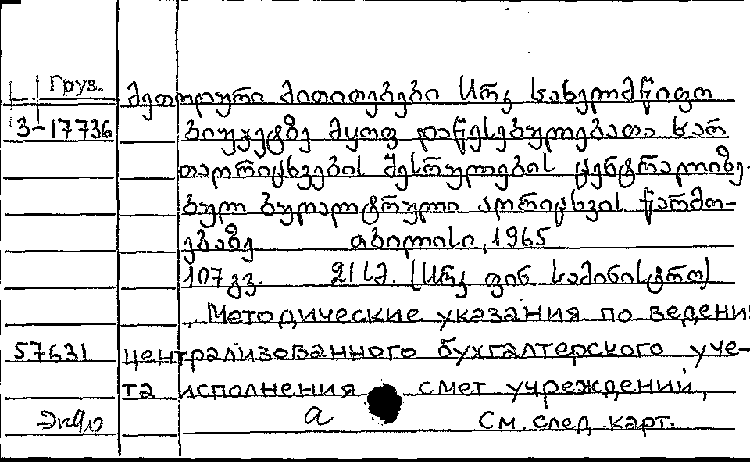 Груз. მეთოდური მითითებები სსრკ სახელმწიფო
3-17736 ბიუჯეტზე მყოფ დაწესებულებათა ხარ
თაღრიცხვების შესრულების ცენტრალიზე-
ბულ ბუღალტრული აღრიცხვის წარმო-
ებაზე თბილისი, 1965
107 გვ. 21 სმ. (სსრკ ფინ. სამინისტრო)
Методические указания по ведени
57631 централизованного бухгалтерского уче-
та исполнения смет учреждений,
а См. след. карт.